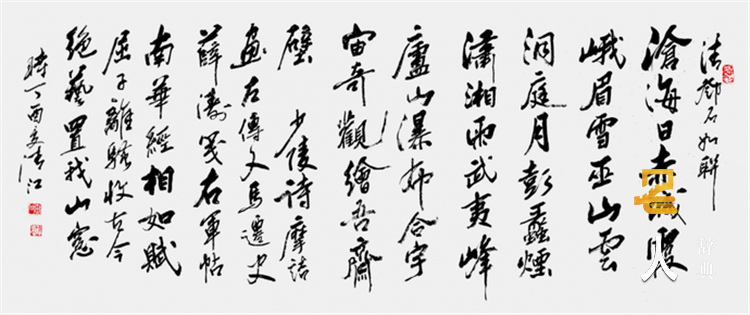 清鄧石如聯
滄海日赤城霞
峨眉雪巫山雲
洞庭月彭蠡煙
瀟湘雨武夷峰
廬山瀑布合宇
宙奇觀繪吾齋
壁 少陵詩摩詰
畫左傳文馬遷史
薛濤箋右軍帖
南華經相如賦
屈子離騷收古今
絕藝置我山窗
時丁酉夏清江
人
辞典